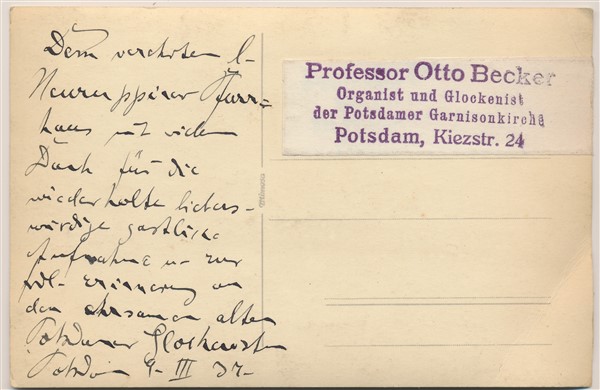 Dem verehrten l-
Neuruppiner Pfarr-
haus mit vielem
Dank für die
wiederholte liebens-
würdige gastliche
Aufnahme u- zur
frdl- Erinnerung an
den ehrsamen alten
Potsdamer Glockenisten
Potsdam 9- III 37-
Professor Otto Becker
Organist und Glockenist
der Potsdamer Garnisonkirche
Potsdam, Kiezstr. 24